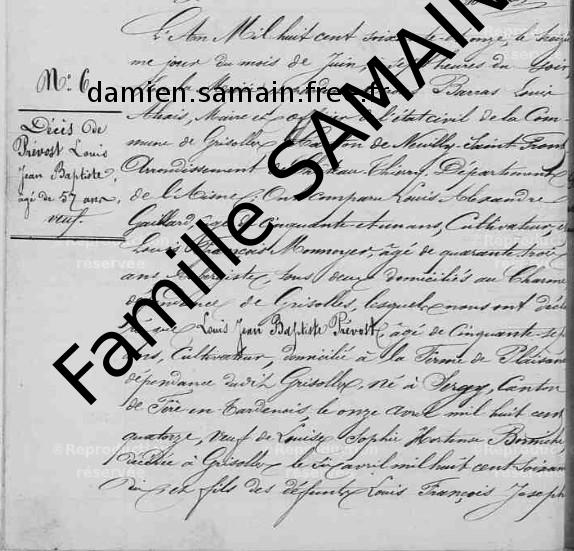 L'An Mil huit cent soixante-et-onze, le treiziè
me jour du mois de Juin, heures du soir,
Barras Louis
Maire et officier de l'état civil de la Com-
mune de Grisolles, Canton de Neuilly-Saint-Front
Arrondissement de Château-Thierry, Département
de l'Aisne; Ont comparu Louis Alexandre
Gaillard, âgé de cinquante et un ans, Cultivateur, et
François Monnoyer, âgé de quarante trois
ans Aubergiste, tous deux domiciliés au Charme
dépendance de Grisolles, lesquels nous ont déclaré
que Louis Jean Baptiste Prévost, âgé de Cinquante sept
ans, Cultivateur, domicilié à la Ferme de Plaisance
dépendance dudit Grisolles, né à Sergy, Canton
de Fère en Tardenois le onze avril mil huit cent
quatorze, veuf de Louise Sophie Hortense
décédée à Grisolles le six avril mil huit cent soixante
dix et fils des défunts Louis François Joseph
N.º 6
Décès de
Prévost Louis
Jean Baptiste,
âgé de 57 ans,
veuf.
damien.samain.free.fr
Famille SAMAIN
©Reproduction
réservée
©Reproduction
réservée
©Reproduction
réservée
©Reproduction
réservée